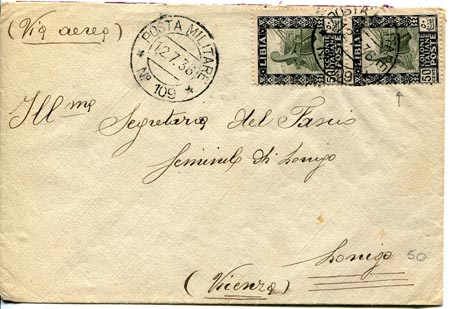 (Via aerea)
POSTA MILITARE
12.7.36
No 109
LIBIA
POSTE ITALIANE
50
LIBIA
POSTE ITALIANE
50
Ill ma Segretaria del Fascio
Feminile di Lonigo
Lonigo
50
(Vicenza)